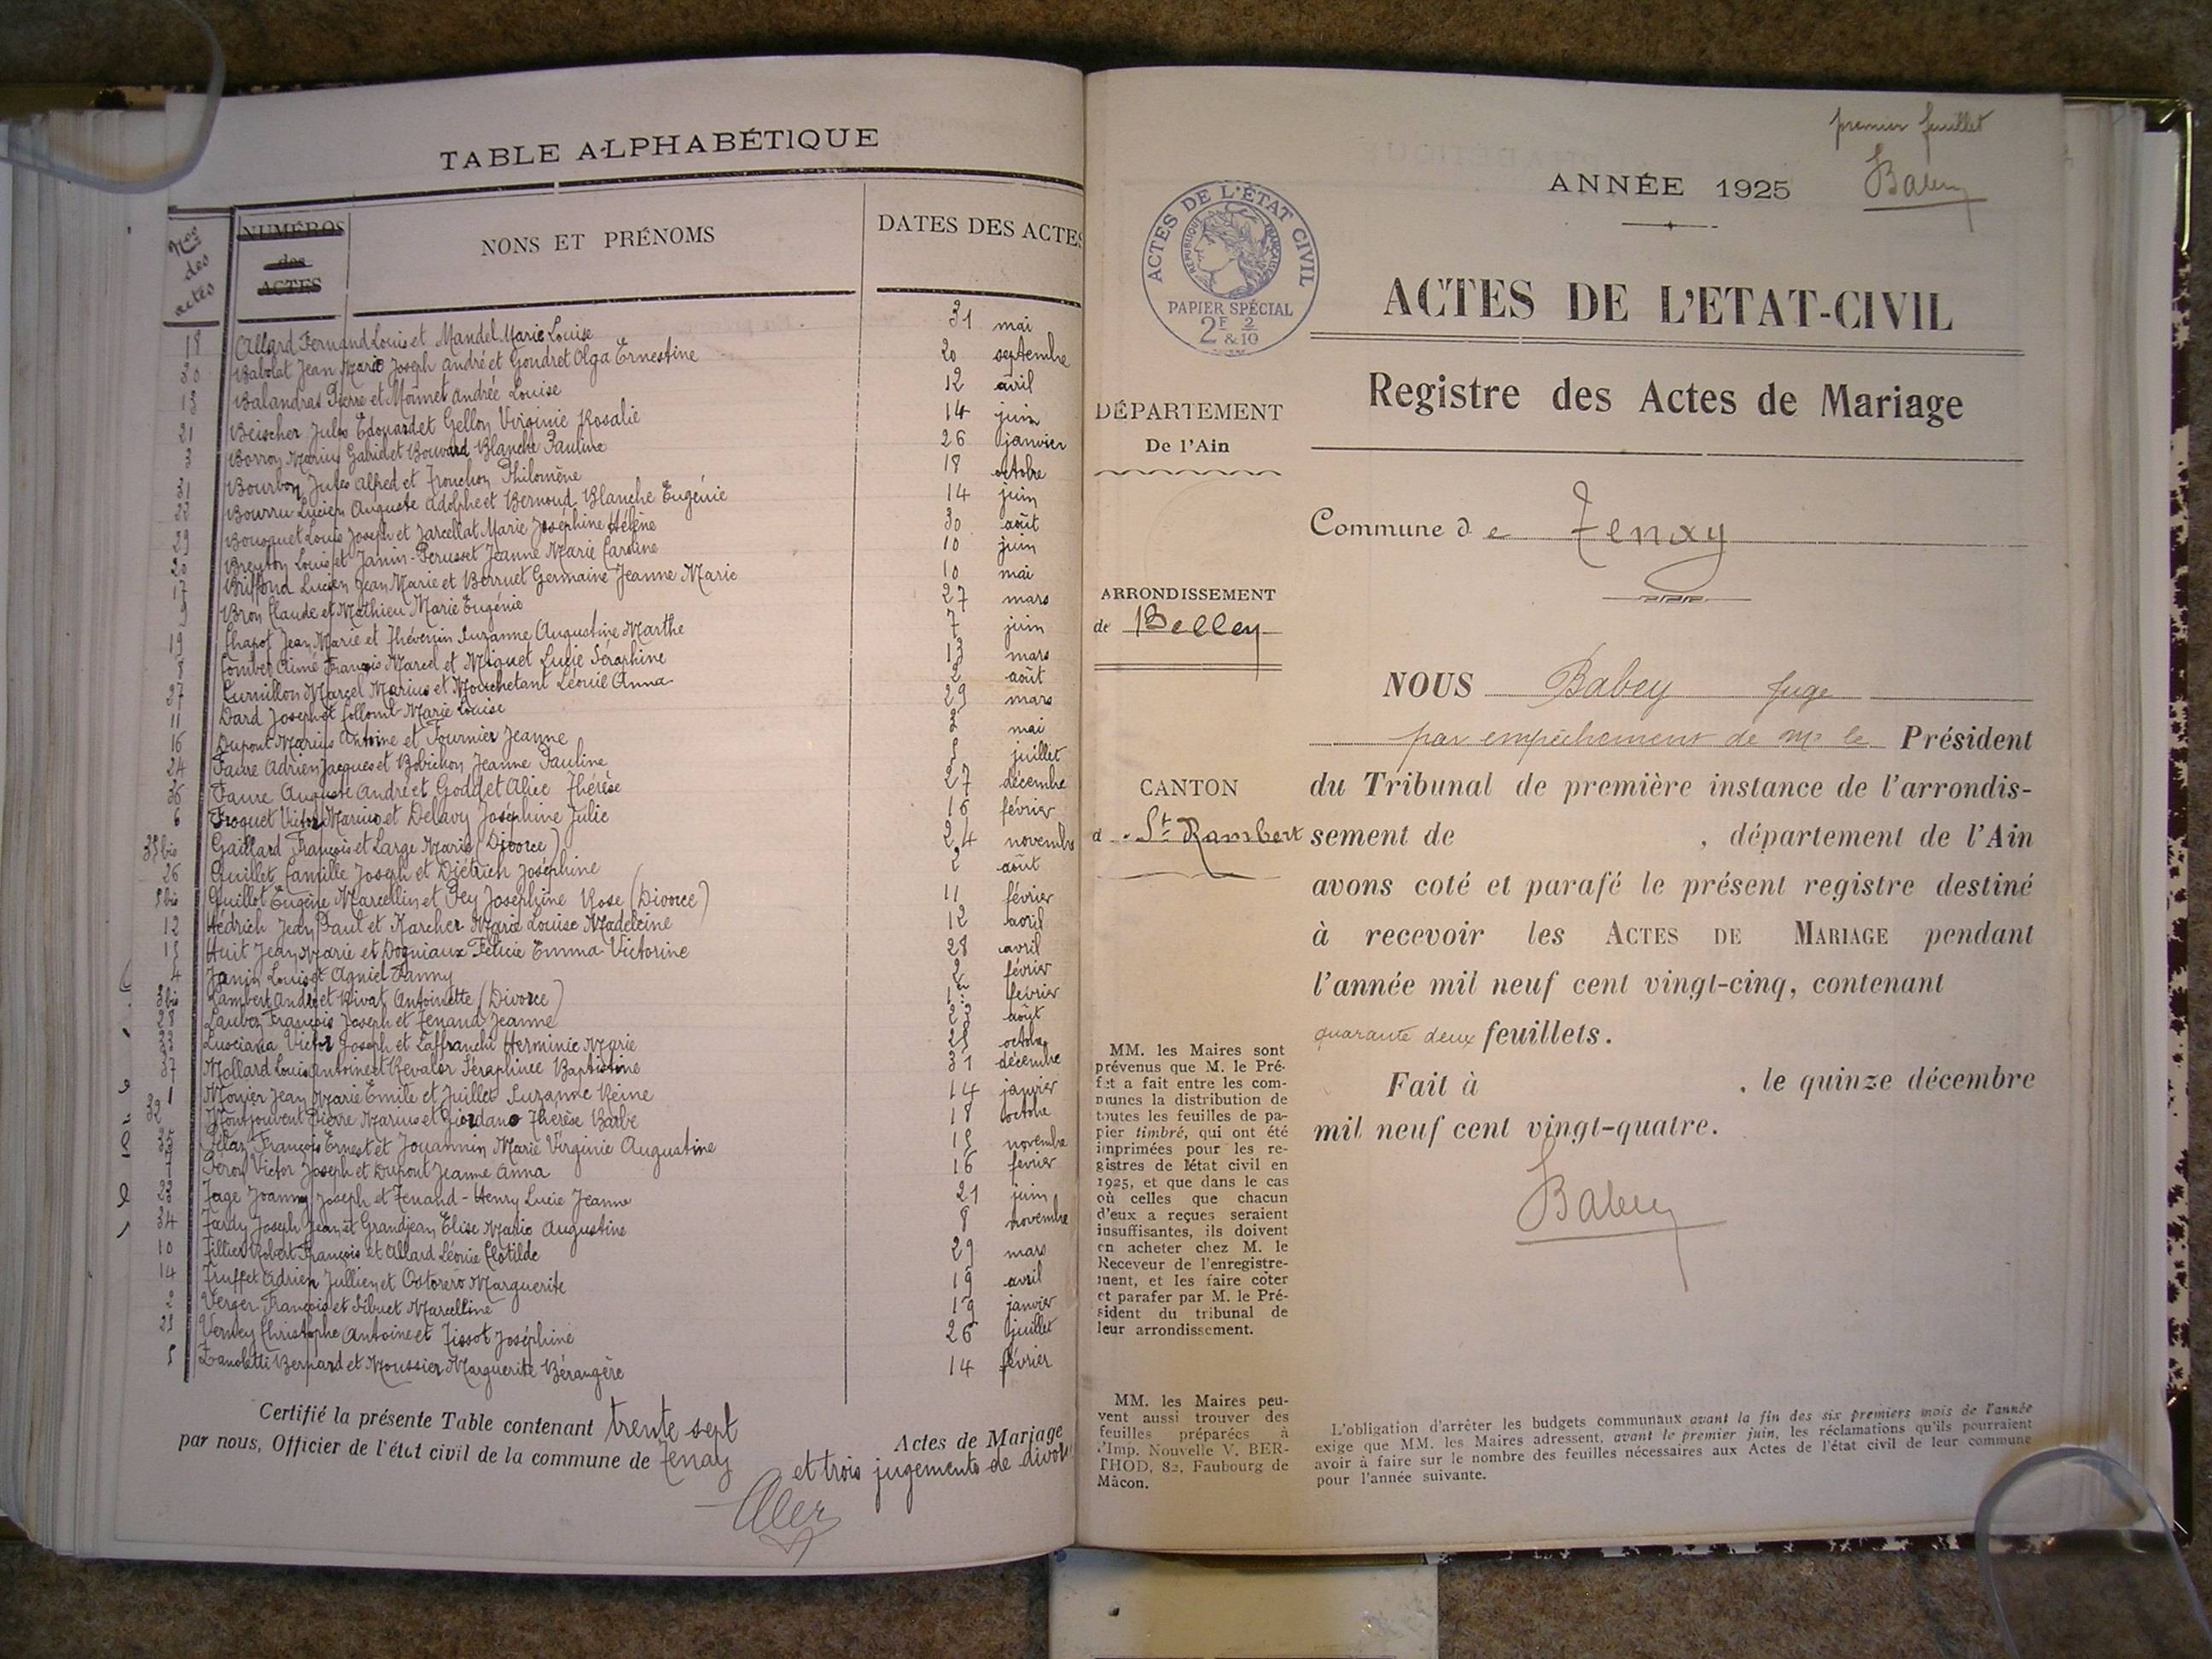 TABLE ALPHABÉTIQUE
Nos des actes
NUMÉROS des ACTES
NONS ET PRÉNOMS
DATES DES ACTES
18 Allard Fernand Louis et Mandel Marie Louise 31 mai
30 Babolat Jean Marie Joseph André et Goudret Olga Ernestine 20 septembre
13 Balandras Pierre et Monnet Andrée Louise 12 avril
21 Beischer Jules Edouard et Gellon Virginie Rosalie 14 juin
3 Borron Marius Gabriel et Bouvard Blanche Pauline 26 janvier
31 Bourbon Jules Alfred et Fronchon Philomène 18 octobre
22 Bourru Lucien Auguste Adolphe et Bernoud Blanche Eugénie 14 juin
29 Bousquet Louis Joseph et Jarcellat Marie Joséphine Hélène 30 août
20 Breyton Louis et Janin-Perusset Jeanne Marie Caroline 10 juin
17 Briffond Lucien Jean Marie et Berruet Germaine Jeanne Marie 10 mai
9 Bron Claude et Mathieu Marie Eugénie 27 mars
19 Chapot Jean Marie et Thévenin Suzanne Augustine Marthe 7 juin
8 Combet Aimé François Marcel et Miguet Lucie Séraphine 13 mars
27 Curnillon Marcel Marius et Mouchetant Léonie Anna 2 août
11 Dard Joseph et Collomb Marie Louise 29 mars
16 Dupont Marius Antoine et Fournier Jeanne 2 mai
24 Faure Adrien Jacques et Bobichon Jeanne Pauline 5 juillet
36 Faure Auguste André et Goddet Alice Thérèse 27 décembre
6 Froquet Victor Marius et Delavy Joséphine Julie 16 février
35 bis Gaillard François et Large Marie (Divorce) 24 novembre
26 Guillet Camille Joseph et Diétrich Joséphine 2 août
5 bis Guillot Eugène Marcellin et Pey Joséphine Rose (Divorce) 11 février
12 Hédrich Jean Paul et Karcher Marie Louise Madeleine 12 avril
15 Huit Jean Marie et Dogniaux Félicie Emma Victorine 28 avril
4 Janin Louis et Agniel Fanny 2 février
3 bis Lambert André et Rivat Antoinette (Divorce) 1er février
28 Laubez François Joseph et Tenand Jeanne 23 août
33 Lusciana Victor Joseph et Laffranchi Herminie Marie 25 octobre
37 Mollard Louis Antoine et Revalor Séraphine Baptistine 31 décembre
1 Monier Jean Marie Emile et Juillet Suzanne Reine 14 janvier
32 Montjouvent Pierre Marius et Giordano Thérèse Barbe 18 octobre
35 Pélaz François Ernest et Jouannin Marie Virginie Augustine 15 novembre
7 Peron Victor Joseph et Dupont Jeanne Anna 16 février
23 Tage Joanny Joseph et Tenand-Henry Lucie Jeanne 21 juin
34 Tardy Joseph Jean et Grandjean Elise Marie Augustine 8 novembre
10 Tillier Robert François et Allard Léonie Clotilde 29 mars
14 Truffet Adrien Jullien et Ostorero Marguerite 19 avril
2 Verger François et Sibuet Marcelline 19 janvier
25 Verney Christophe Antoine et Tissot Joséphine 26 juillet
5 Zanoletti Bernard et Moussier Marguerite Bérangère 14 février
Certifié la présente Table contenant trente sept Actes de Mariage
par nous, Officier de l'état civil de la commune de Tenay et trois jugements de divorce
premier feuillet
Babey
ANNÉE 1925
ACTES DE L'ÉTAT CIVIL
RÉPUBLIQUE FRANÇAISE
PAPIER SPÉCIAL
2F & 2/10
ACTES DE L'ETAT-CIVIL
Registre des Actes de Mariage
DÉPARTEMENT
De l'Ain
Commune de Tenay
ARRONDISSEMENT
de Belley
CANTON
d St Rambert
NOUS Babey juge
par empêchement de Mr le Président
du Tribunal de première instance de l'arrondis-
sement de , département de l'Ain
avons coté et parafé le présent registre destiné
à recevoir les ACTES DE MARIAGE pendant
l'année mil neuf cent vingt-cinq, contenant
quarante deux feuillets.
Fait à , le quinze décembre
mil neuf cent vingt-quatre.
Babey
MM. les Maires sont
prévenus que M. le Pré-
fet a fait entre les com-
munes la distribution de
toutes les feuilles de pa-
pier timbré, qui ont été
imprimées pour les re-
gistres de l'état civil en
1925, et que dans le cas
où celles que chacun
d'eux a reçues seraient
insuffisantes, ils doivent
en acheter chez M. le
Receveur de l'enregistre-
ment, et les faire coter
et parafer par M. le Pré-
sident du tribunal de
leur arrondissement.
MM. les Maires peu-
vent aussi trouver des
feuilles préparées à
l'Imp. Nouvelle V. BER-
THOD, 82, Faubourg de
Mâcon.
L'obligation d'arrêter les budgets communaux avant la fin des six premiers mois de l'année
exige que MM. les Maires adressent, avant le premier juin, les réclamations qu'ils pourraient
avoir à faire sur le nombre des feuilles nécessaires aux Actes de l'état civil de leur commune
pour l'année suivante.